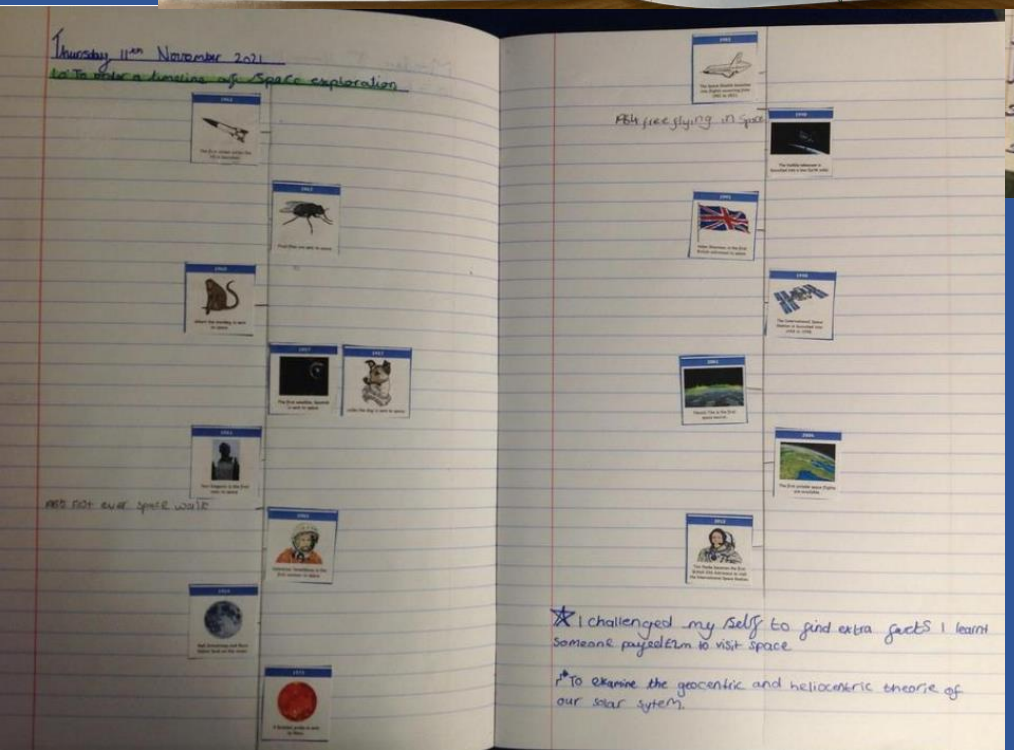 Thursday 11th November 2021
Lo: To order a timeline of space exploration
1942
The first rocket enters the
1947
Fruit flies are sent to space
1949
Albert the monkey is sent
to space
1957
The first satellite, Sputnik
is sent to space
1957
Laika the dog is sent to space
1961
Yuri Gagarin is the first
man in space
1965 first ever space walk
1963
Valentina Tereshkova is the
first woman in space
1969
Neil Armstrong and Buzz
Aldrin land on the moon
1971
1981
The Space Shuttle launches
1984 free flying in space
1990
The Hubble telescope is
launched into a low Earth orbit
1991
Helen Sharman is the first
British astronaut in space
1998
The International Space
Station is launched into
2001
Dennis Tito is the first
space tourist
2004
The first private space flights
are available
Tim Peake becomes the first
British ESA astronaut to visit
the International Space Station
I challenged my self to find extra facts I learnt
someone payed £2m to visit space
To examine the geocentric and heliocentric theorie of
our solar sytem.